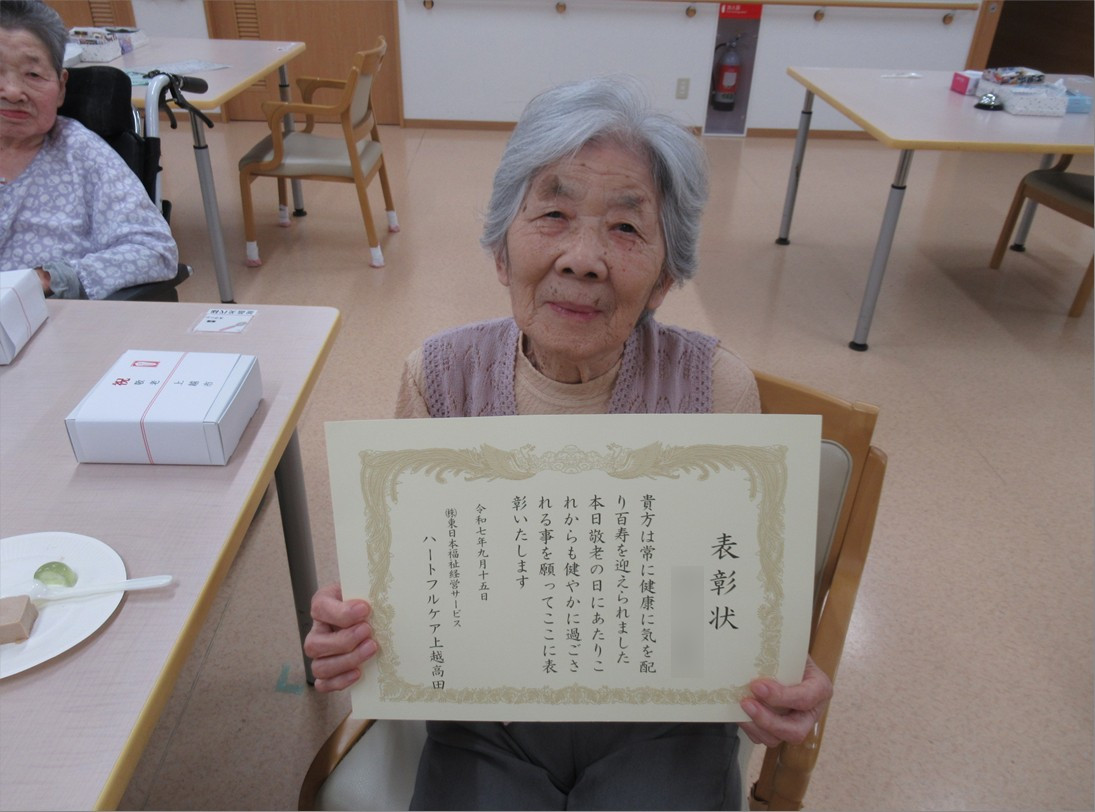 表彰状
貴方は常に健康に気を配
り百寿を迎えられました
本日敬老の日にあたりこ
れからも健やかに過ごさ
れる事を願ってここに表
彰いたします
令和七年九月十五日
㈱東日本福祉経営サービス
ハートフルケア上越高田
祝